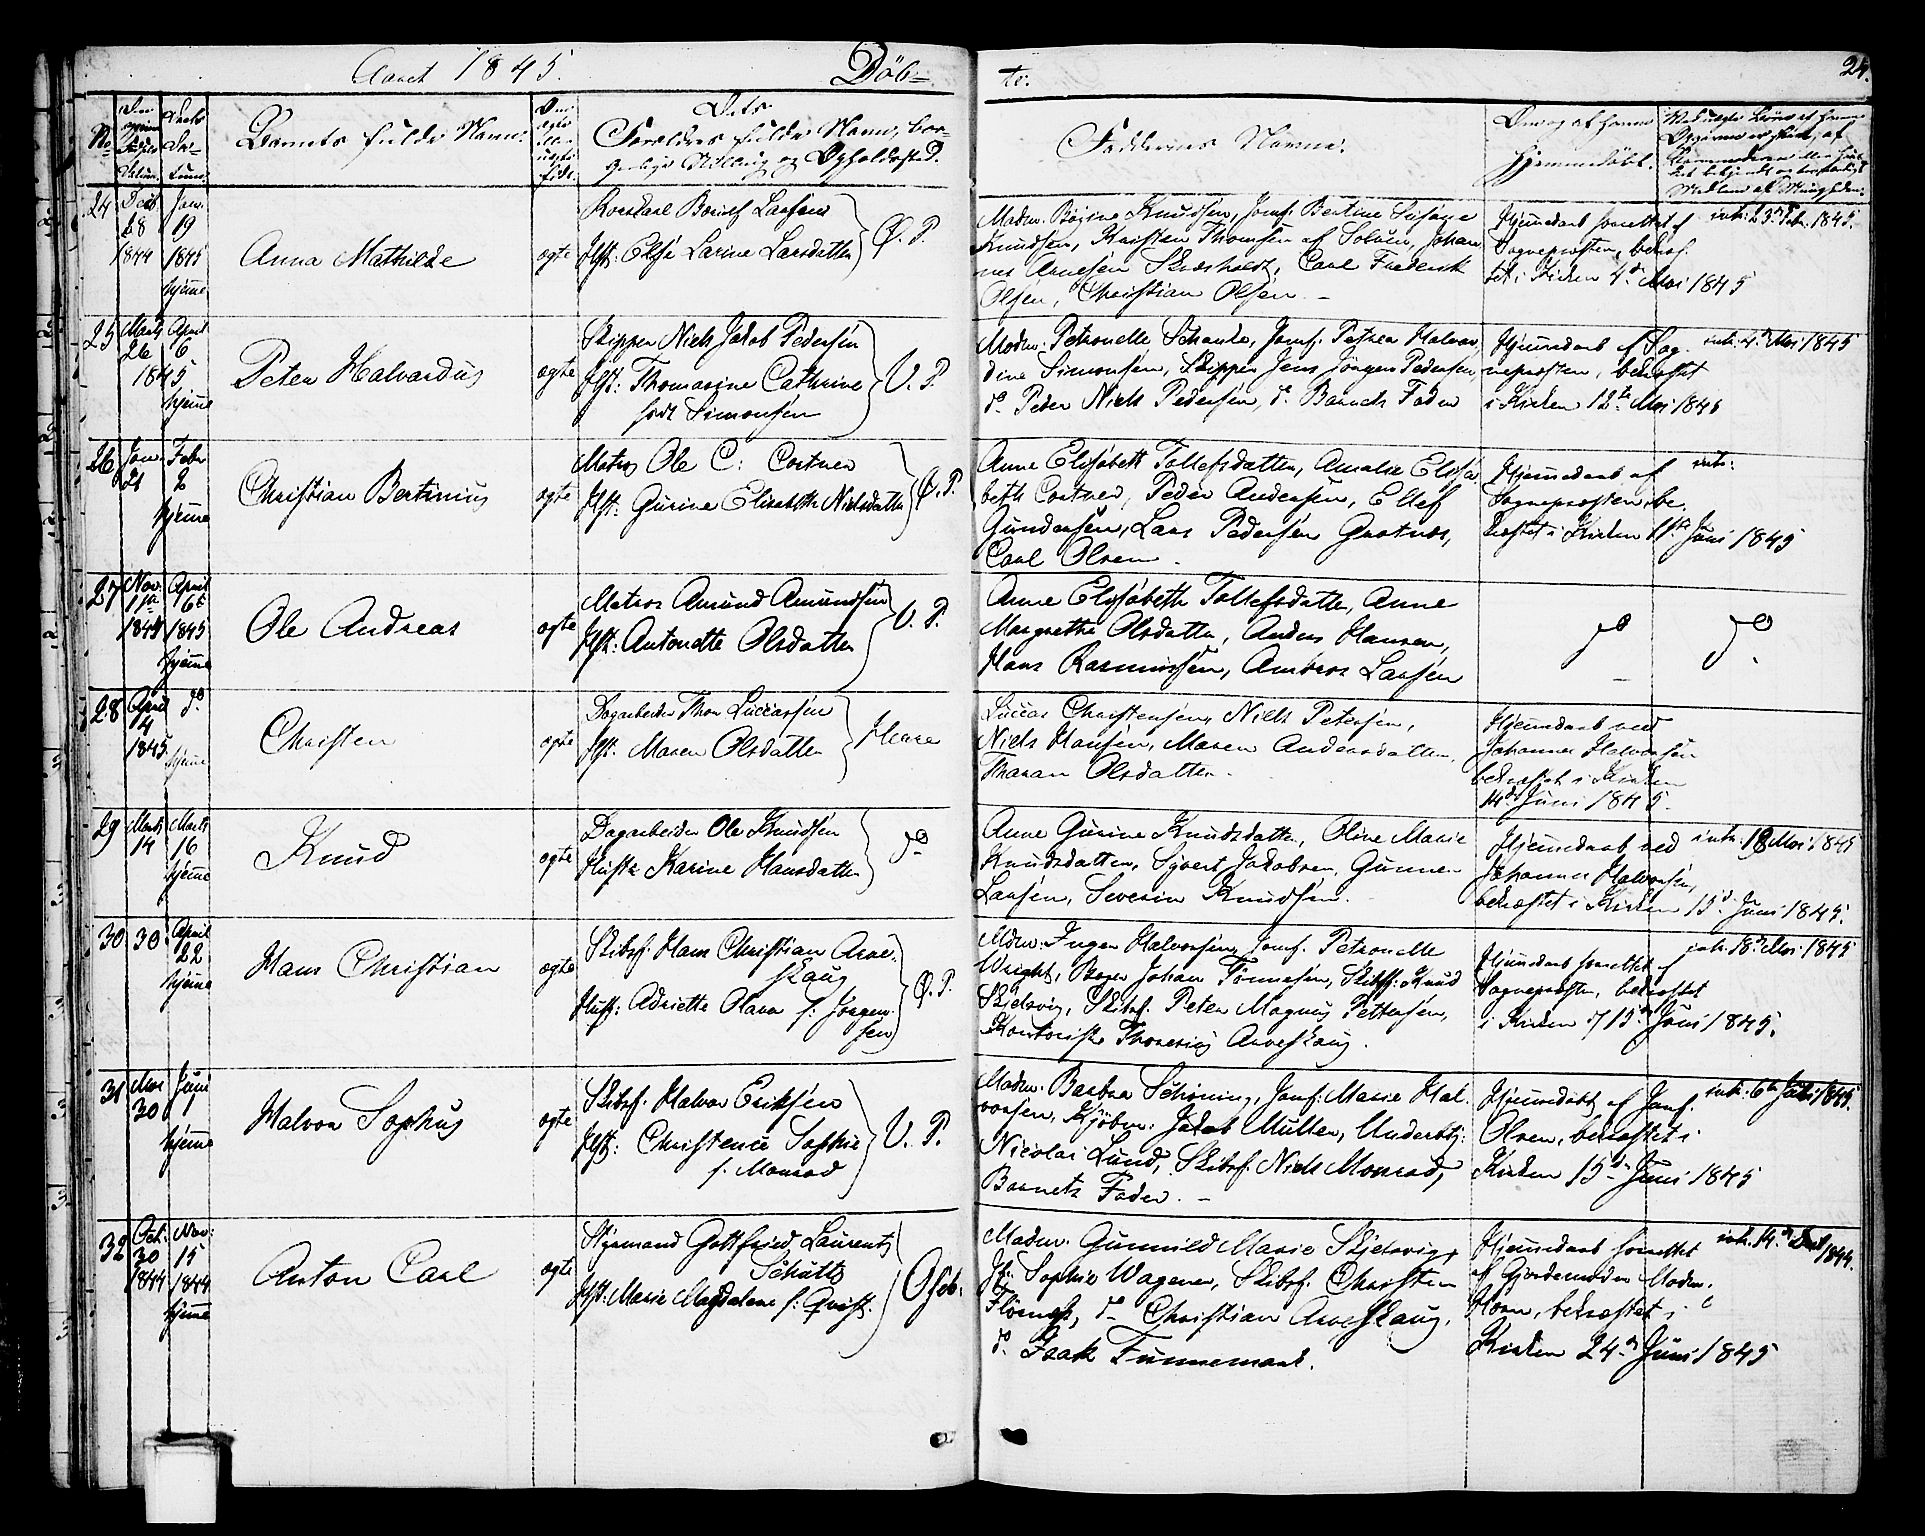 Aaret 1845.
Døb=
te.
24.
No
Barnets fulde Navn.
Dets
Forældres fulde Navn, bor-
gerlige Stilling og Opholdssted.
Faddernes Navne.
Hjemmedøbt.
24
Decb
28
1844
Jan.
19
1845
hjeme
Anna Mathilde
ægte
Hst: Else Larine Larsdatter
Ø. P.
Madm. Bergine Knudsen, Jomf. Bertine
Knudsen, Kristen Thomsen af
nes Arnesen Skedsholdt, Carl Frederik
Olsen, Christian Olsen. –
Hjemedaab forrettet af
Sognepræsten, bekræf-
tet i Kirken 4de Mai 1845
intr. 23de Febr. 1845.
25
Marts
26
1845
April
6
hjeme
Peter Halvardus
ægte
Skipper Niels Jakob Pedersen
Hst: Thomasine Cathrine
født Simonsen
V. P.
Madm. Petronelle Schanke, Jomf. Petrea Halvar-
dine Simonsen, Skipper Jens Jørgen Pedersen
do Peder Niels Pedersen, do Barnets Fader
Hjemedaab af Sog-
nepræsten, bekræftet
i Kirken 12te Mai 1845
intr. 4de Mai 1845
26
Jan.
21
Febr
2
hjeme
Christian Bertinius
ægte
Matros Ole C: Cortner
Hst: Gurine Elisabeth Nielsdatter
Ø. P.
Anne Elisabeth Tollefsdatter, Amalie Elisa-
beth Cortner, Peder Andersen, Ellef
Gundersen, Lars Pedersen
Carl Olsen.
Hjemedaab af
Sognepræsten, be-
kræftet i Kirken 11te Juni 1845
intr:
27
Nov.
11te
April
6te
1845
hjeme
Ole Andreas
ægte
Matros Amund Amundsen
Hst: Antonette Olsdatter
V. P.
Anne Elisabeth Tollefsdatter, Anne
Margrethe Olsdatter, Anders Hansen,
Hans Rasmussen, Ambros Larsen
do
do
28
April
14
1845
do
hjeme
Christen
ægte
Dagarbeider Thor Luccassen
Hst: Maren Olsdatter
Heire
Luccas Christensen, Niels Petersen,
Niels Hansen, Maren Andersdatter,
Tharan Olsdatter.
Hjemedaab ved
Johannes Halvorsen
bekræftet i Kirken
14de Juni 1845.
29
Marts
14
Marts
16
hjeme
Knud
ægte
Dagarbeider Ole Knudsen
Hustr Karine Hansdatter
do
Anne Gurine Knudsdatter, Oline Marie
Knudsdatter, Syvert Jakobsen, Gunner
Larsen, Severin Knudsen.
Hjemedaab ved
Johannes Halvorsen,
bekræftet i Kirken 15de Juni 1845.
intr. 18 Mai 1845
30
30
April
22
hjeme
Hans Christian
ægte
Skibsf. Hans Christian Arve-
skaug
Hust: Adriette Olava f: Jørgen-
sen
Ø. P.
Mdm. Inger Halvorsen, Jomf. Petronelle
Wright, Bager Johan Tønnesen, Skibsf. Knud
Skjelsvig, Skibsf. Peter Magnus Pettersen,
Kontorist Thorenius Arveskaug.
Hjemedaab forrettet af
Sognepræsten, bekræftet
i Kirken d 15de Juni 1845.
intr. 18de Mai 1845
31
Mai
30
Juni
1
hjeme
Halvor Sophus
ægte
Skibsf. Halvor Eriksen
Hst: Christence Sophie
f. Monrad
V. P.
Madm. Barbra Schøning, Jomf: Marie Hal-
vorsen, Kjøbm. Jakob Müller, Underbtj:
Nicolai Lund, Skibsf: Niels Monrad,
Barnets Fader. –
Hjemmedøbt af Jomf.
Olsen, bekræftet i
Kirken 15de Juni 1845
intr. 6te Juli 1845.
32
Oct:
30
1844
Nov:
15
1844
hjeme
Anton Carl
ægte
Styrmand Gottfried Laurentz
Schütts
Hst: Marie Magdalene f: Qvist.
Madm. Gunnild Marie Skjelsvig,
Jf: Sophie Wagener, Skibsf. Christen
Flørnes, do Christian Arveskaug,
do Isak Funnemark.
Hjemedaab forrettet
af Gjordemoder Madm.
Horn, bekræftet i
Kirken 24de Juni 1845
intr. 14de 1844.